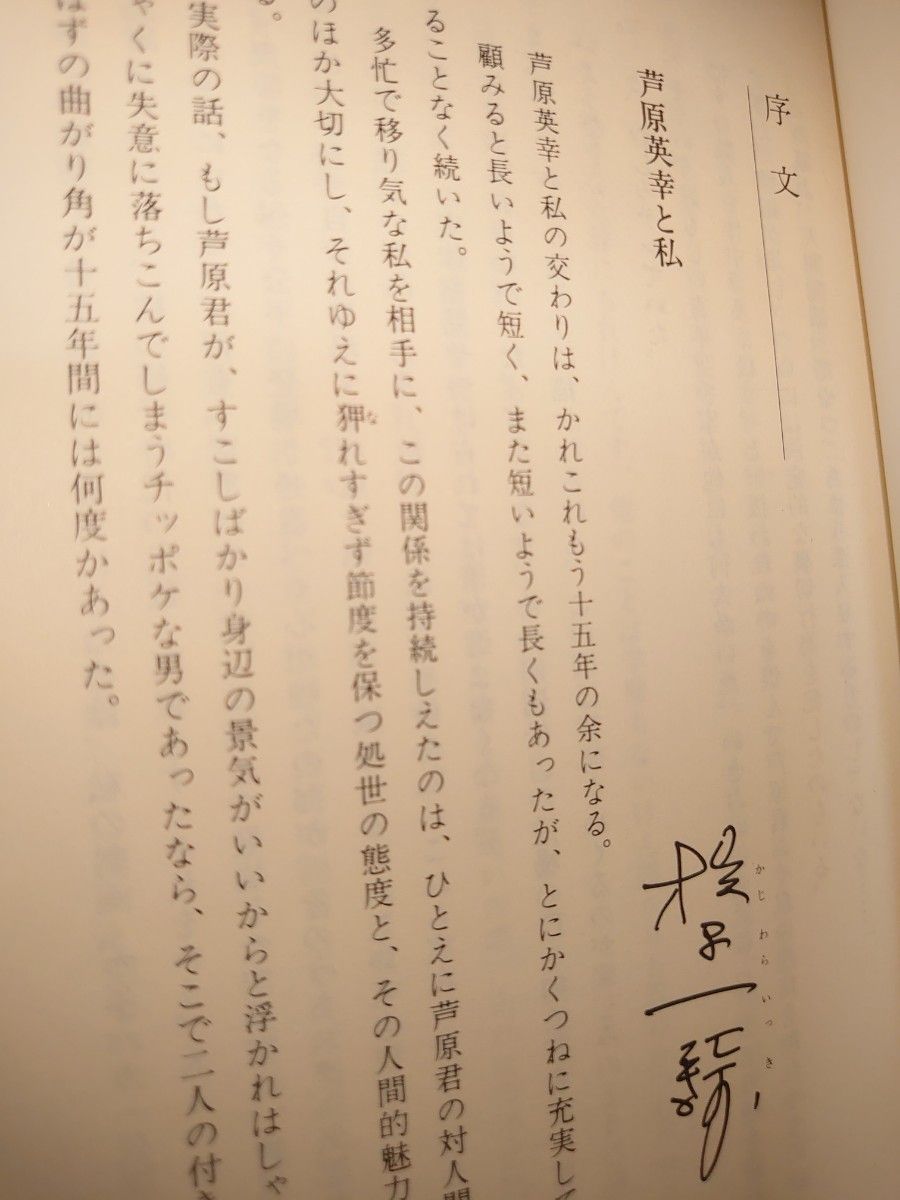 序文
芦原英幸と私
かじわらいっき
梶原一騎
芦原英幸と私の交わりは、かれこれもう十五年の余になる。
顧みると長いようで短く、また短いようで長くもあったが、とにかくつねに充実して
ることなく続いた。
多忙で移り気な私を相手に、この関係を持続しえたのは、ひとえに芦原君の対人間
のほか大切にし、それゆえに狎れすぎず節度を保つ処世の態度と、その人間的魅力
な
る。
実際の話、もし芦原君が、すこしばかり身辺の景気がいいからと浮かれはしゃ
ゃくに失意に落ちこんでしまうチッポケな男であったなら、そこで二人の付き
はずの曲がり角が十五年間には何度かあった。